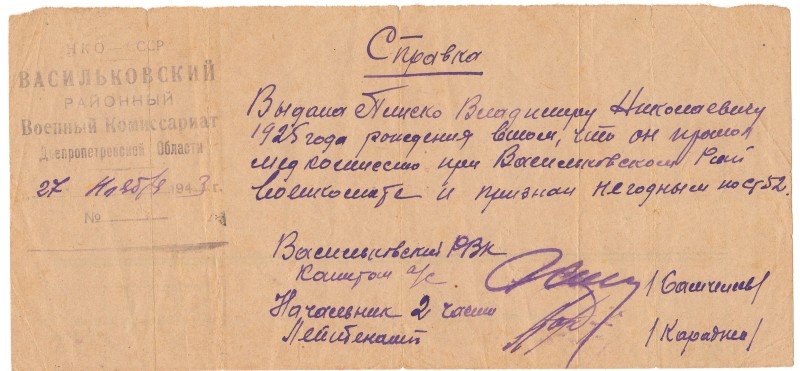 НКО — СССР
ВАСИЛЬКОВСКИЙ
РАЙОННЫЙ
Военный Комиссариат
Днепропетровской Области
27 Ноября 1943 г.
№
Справка
Выдана Пинско Владимиру Николаевичу
1925 года рождения в том, что он прошол
медкомиссию при Васильковском Рай
военкомате и признан негодным по ст 52.
Васильковский РВК
Капитан а/с
Начальник 2 части
Лейтенант